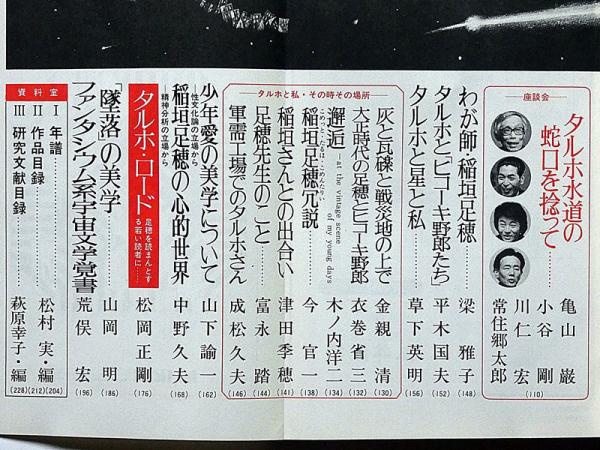 座談会
タルホ水道の
蛇口を捻って……
亀山 巌
小谷 剛
川仁 宏
常住郷太郎
(110)
わが師・稲垣足穂……梁 雅子(148)
タルホと「ヒコーキ野郎たち」……平木国夫(152)
タルホと星と私……草下英明(156)
タルホと私・その時その場所
灰と瓦礫と戦災地の上で……金親 清(130)
大正時代の足穂とヒコーキ野郎……衣巻省三(132)
邂逅—at the vintage scene of my young days……木ノ内洋二(134)
稲垣足穂冗説……今 官一(138)
稲垣さんとの出合い……津田季穂(141)
足穂先生のこと……富永 踏(144)
軍需工場でのタルホさん……成松久夫(146)
少年愛の美学について……山下諭一(162)
—性文化論の立場から
稲垣足穂の心的世界……中野久夫(168)
—精神分析の立場から
タルホ・ロード 足穂を読まんとする若い読者に……松岡正剛(176)
「墜落」の美学……山岡 明(186)
ファンタシウム系宇宙文学覚書……荒俣 宏(196)
資料室
Ⅰ 年譜……松村 実・編(204)
Ⅱ 作品目録……(212)
Ⅲ 研究文献目録……萩原幸子・編(228)